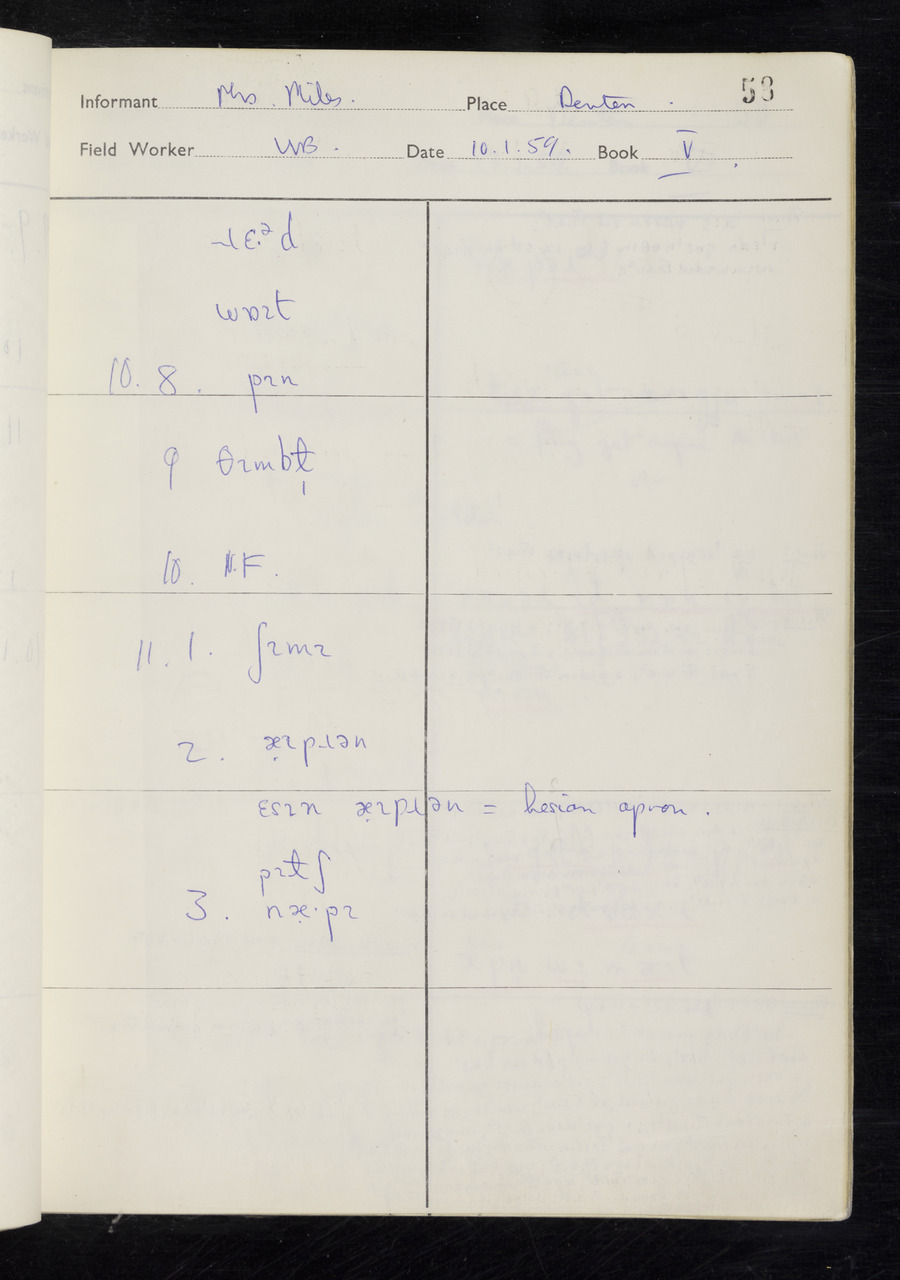 Informant Mrs. Miles. Place Denton . 53
Field Worker WB . Date 10.1.59. Book V
wɒɪt
10. 8 . pɪn
9 θɪmbɫ̩
10. N.F.
11. 1. ʃɪmɪ
2 .
= hesian apron .
pɪtʃ
3 . næ·pɪ